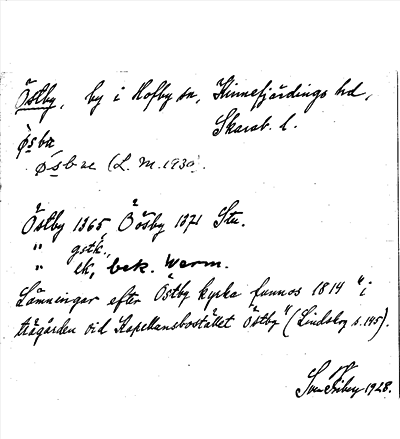 Östby, by i Hofby sn, Kinnefjärdings hd,
Skarab. l.
øsbæ
øsbæ (L. M. 1930).
Östby 1365, Öösby 1371 Stu.
" gstk.,
" ek, bek. Warm.
Lämningar efter Östby kyrka funnos 1814 "i
trägården vid Kapellansbostället Östby" (Lindskog s. 145).
1928.